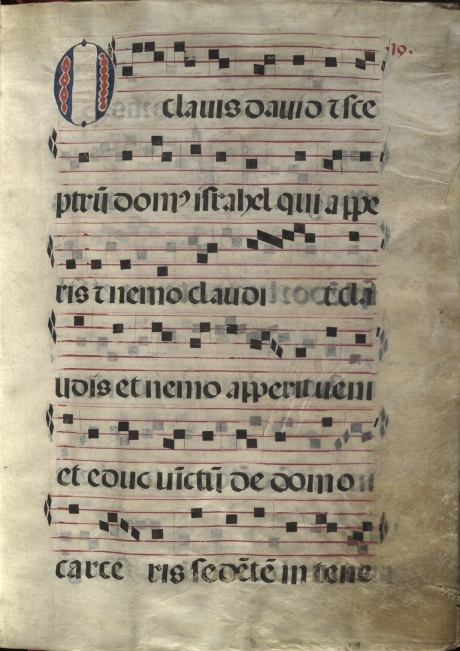 ·19·
O clauis dauid ⁊ sce
ptrū dom⁹ israhel qui a ppe
ris ⁊ nemo claudi t̄ cla
udis et nemo apperit ueni
et educ uīctū de domo
carce ris sedētē in tene